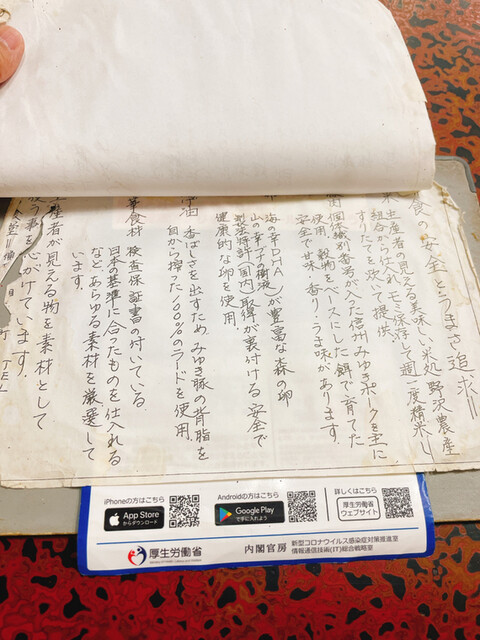 食の安全とうまさ追求!!
生産者の見える美味い米処野沢農産
組合から仕入れモミ保存して週一度精米し
たてを炊いて提供
個体識別番号が入った信州みゆきポークを主に
使用 穀物をベースにした餌で育てた
安全で甘味・香り・うま味があります。
海の幸DHA)が豊富な森の卵
山の幸 の樹液
製法特許(国内)取得が裏付ける安全で
健康的な卵を使用。
油 香ばしさを出すため、みゆき豚の背脂を
自から搾った100%のラードを使用。
華食材 検査保証書の付いている
日本の基準に合ったものを仕入れる
など、あらゆる素材を厳選して
います。
生産者が見える物を素材として
使う事を心がけています。
町 TEL
iPhoneの方はこちら
App Store
からダウンロード
Androidの方はこちら
Google Play
で手に入れよう
詳しくはこちら
厚生労働省
ウェブサイト
厚生労働省
内閣官房
新型コロナウイルス感染症対策推進室
情報通信技術(IT)総合戦略室